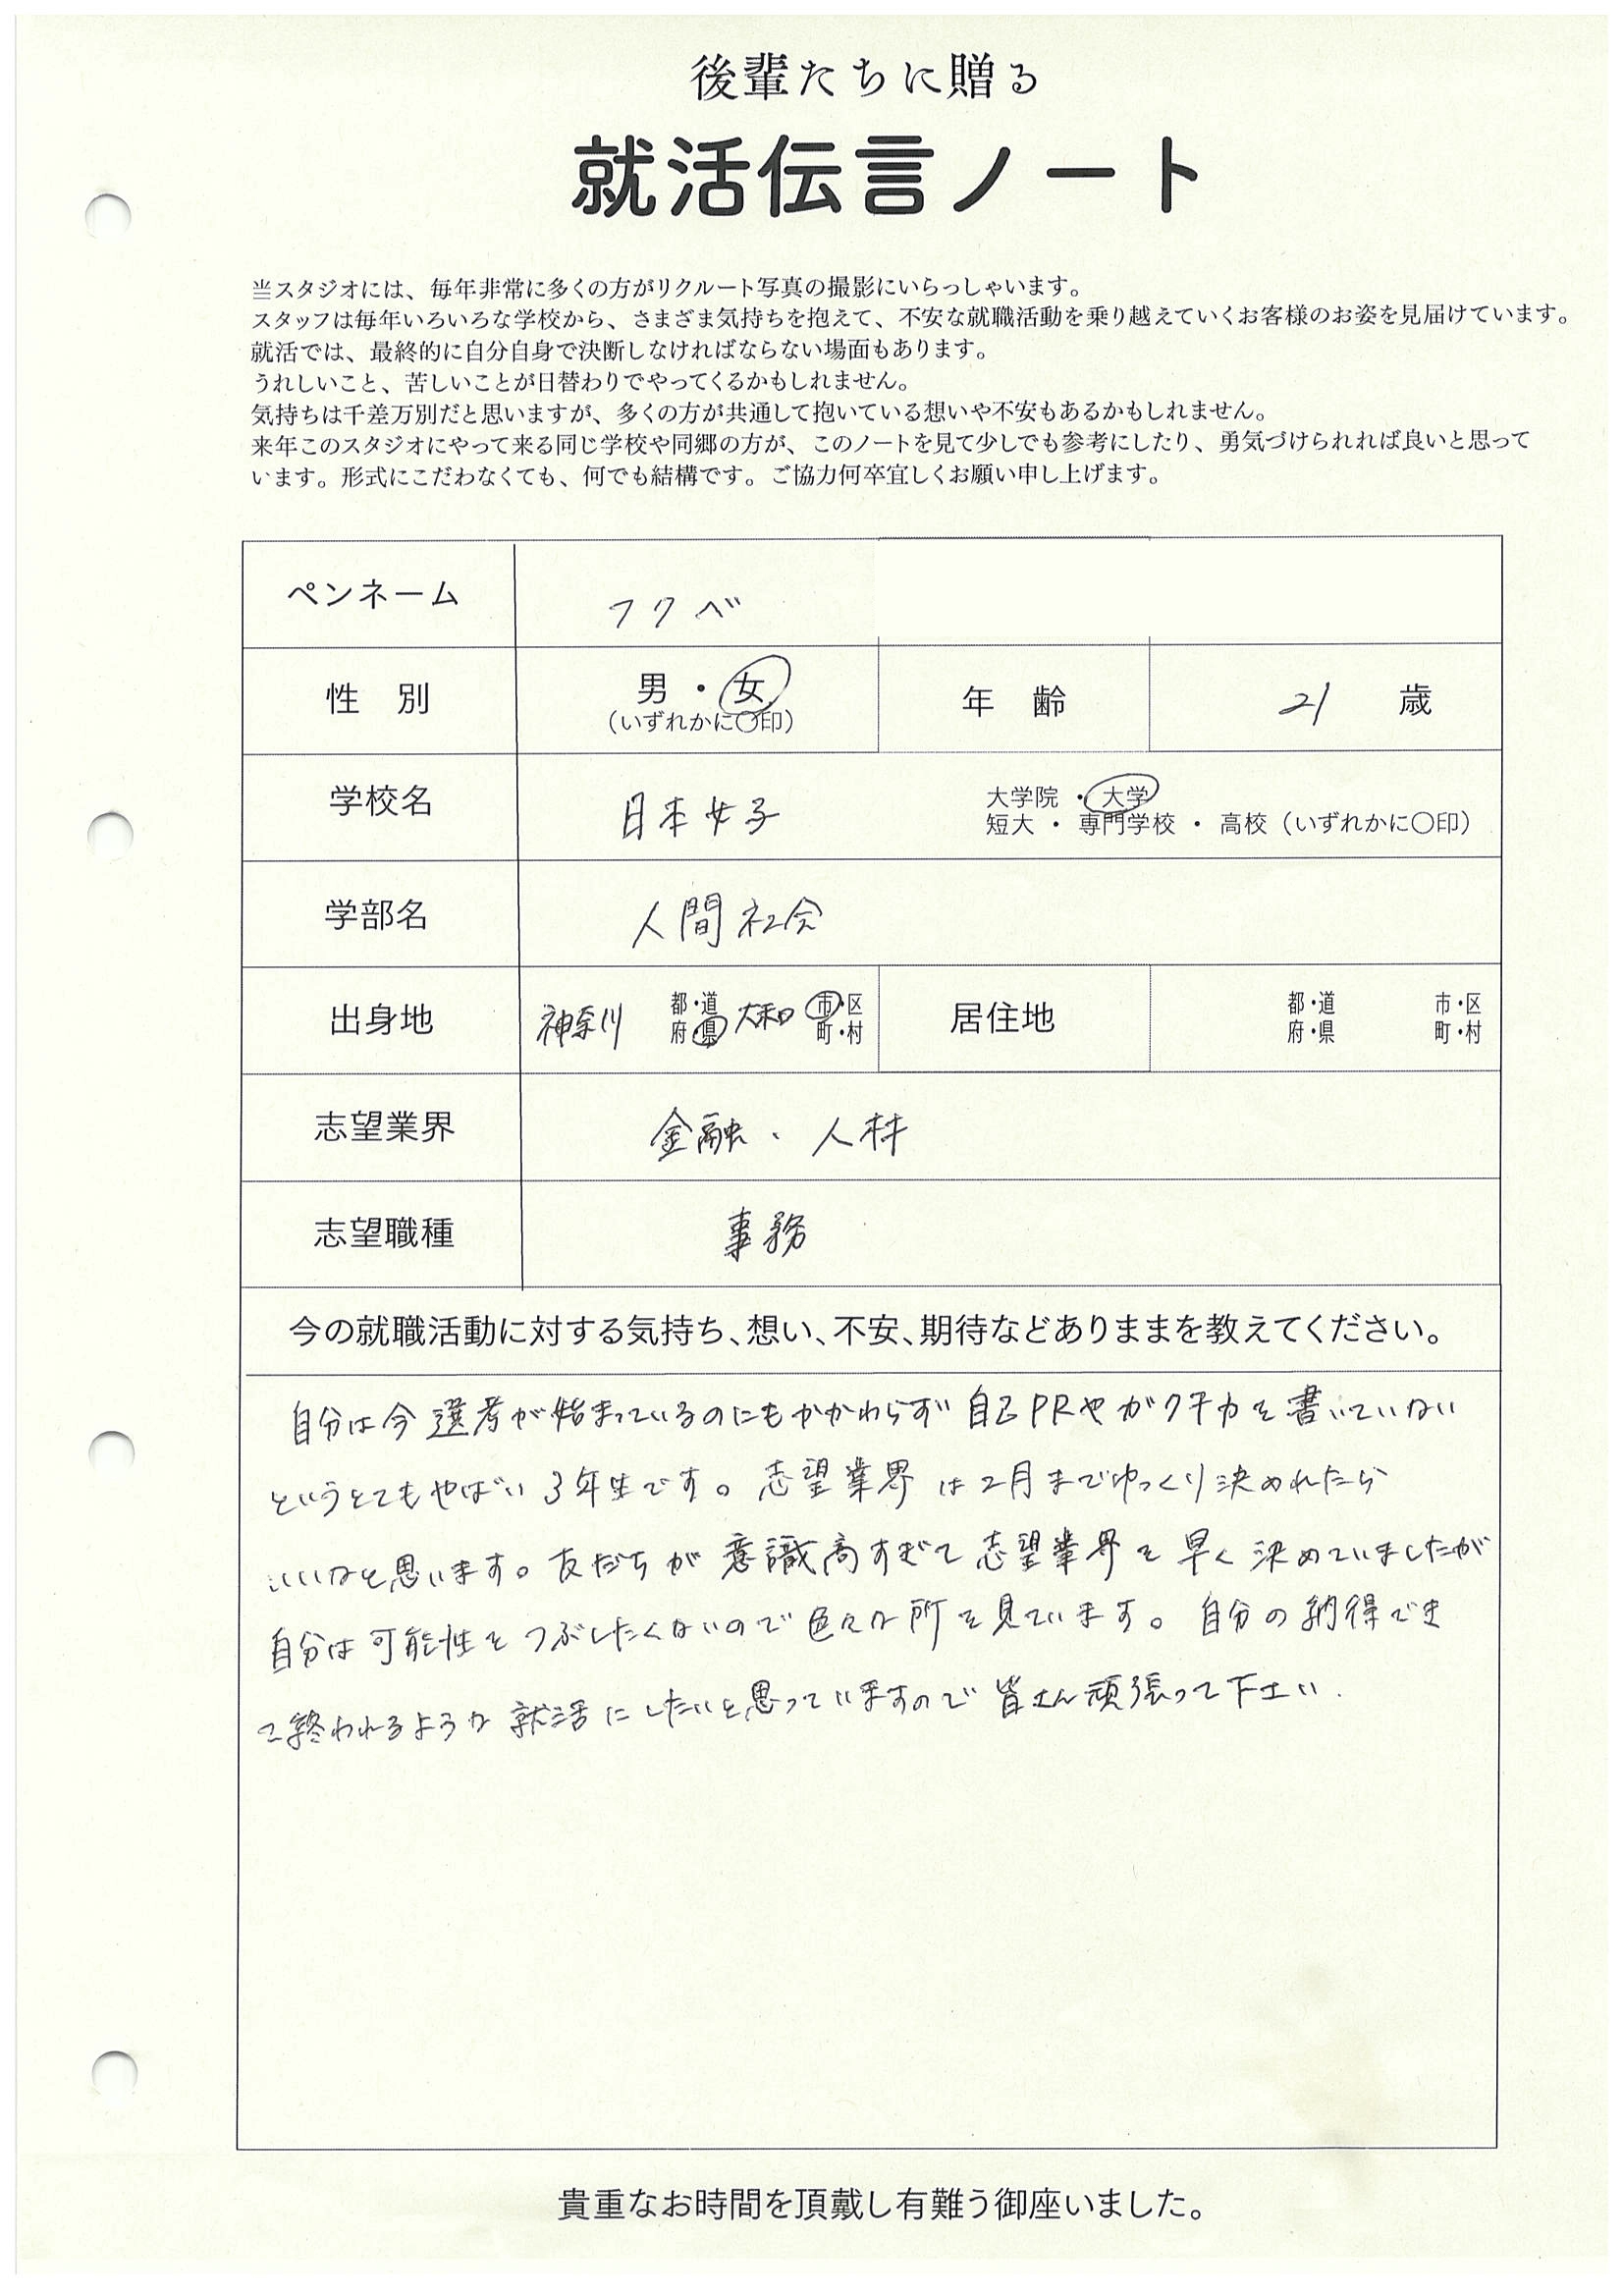 後輩たちに贈る
就活伝言ノート
当スタジオには、毎年非常に多くの方がリクルート写真の撮影にいらっしゃいます。
スタッフは毎年いろいろな学校から、さまざま気持ちを抱えて、不安な就職活動を乗り越えていくお客様のお姿を見届けています。
就活では、最終的に自分自身で決断しなければならない場面もあります。
うれしいこと、苦しいことが日替わりでやってくるかもしれません。
気持ちは千差万別だと思いますが、多くの方が共通して抱いている想いや不安もあるかもしれません。
来年このスタジオにやって来る同じ学校や同郷の方が、このノートを見て少しでも参考にしたり、勇気づけられれば良いと思って
います。形式にこだわなくても、何でも結構です。ご協力何卒宜しくお願い申し上げます。
ペンネーム フクベ
性 別 男・女 (いずれかに〇印) 年 齢 21 歳
学校名 日本女子 大学院・大学
短大・専門学校・高校(いずれかに〇印)
学部名 人間社会
出身地 神奈川 都・道 府・県 大和 市・区 町・村 居住地 都・道 府・県 市・区 町・村
志望業界 金融、人材
志望職種 事務
今の就職活動に対する気持ち、想い、不安、期待などありままを教えてください。
自分は今選考が始まっているのにもかかわらず自己PRやガクチカを書いていない
というとてもやばい3年生です。志望業界は2月までゆっくり決めれたら
いいなと思います。友だちが意識高すぎて志望業界を早く決めていましたが
自分は可能性をつぶしたくないので色々な所を見ています。自分の納得でき
て終われるような就活にしたいと思っていますので皆さん頑張って下さい.
貴重なお時間を頂戴し有難う御座いました。